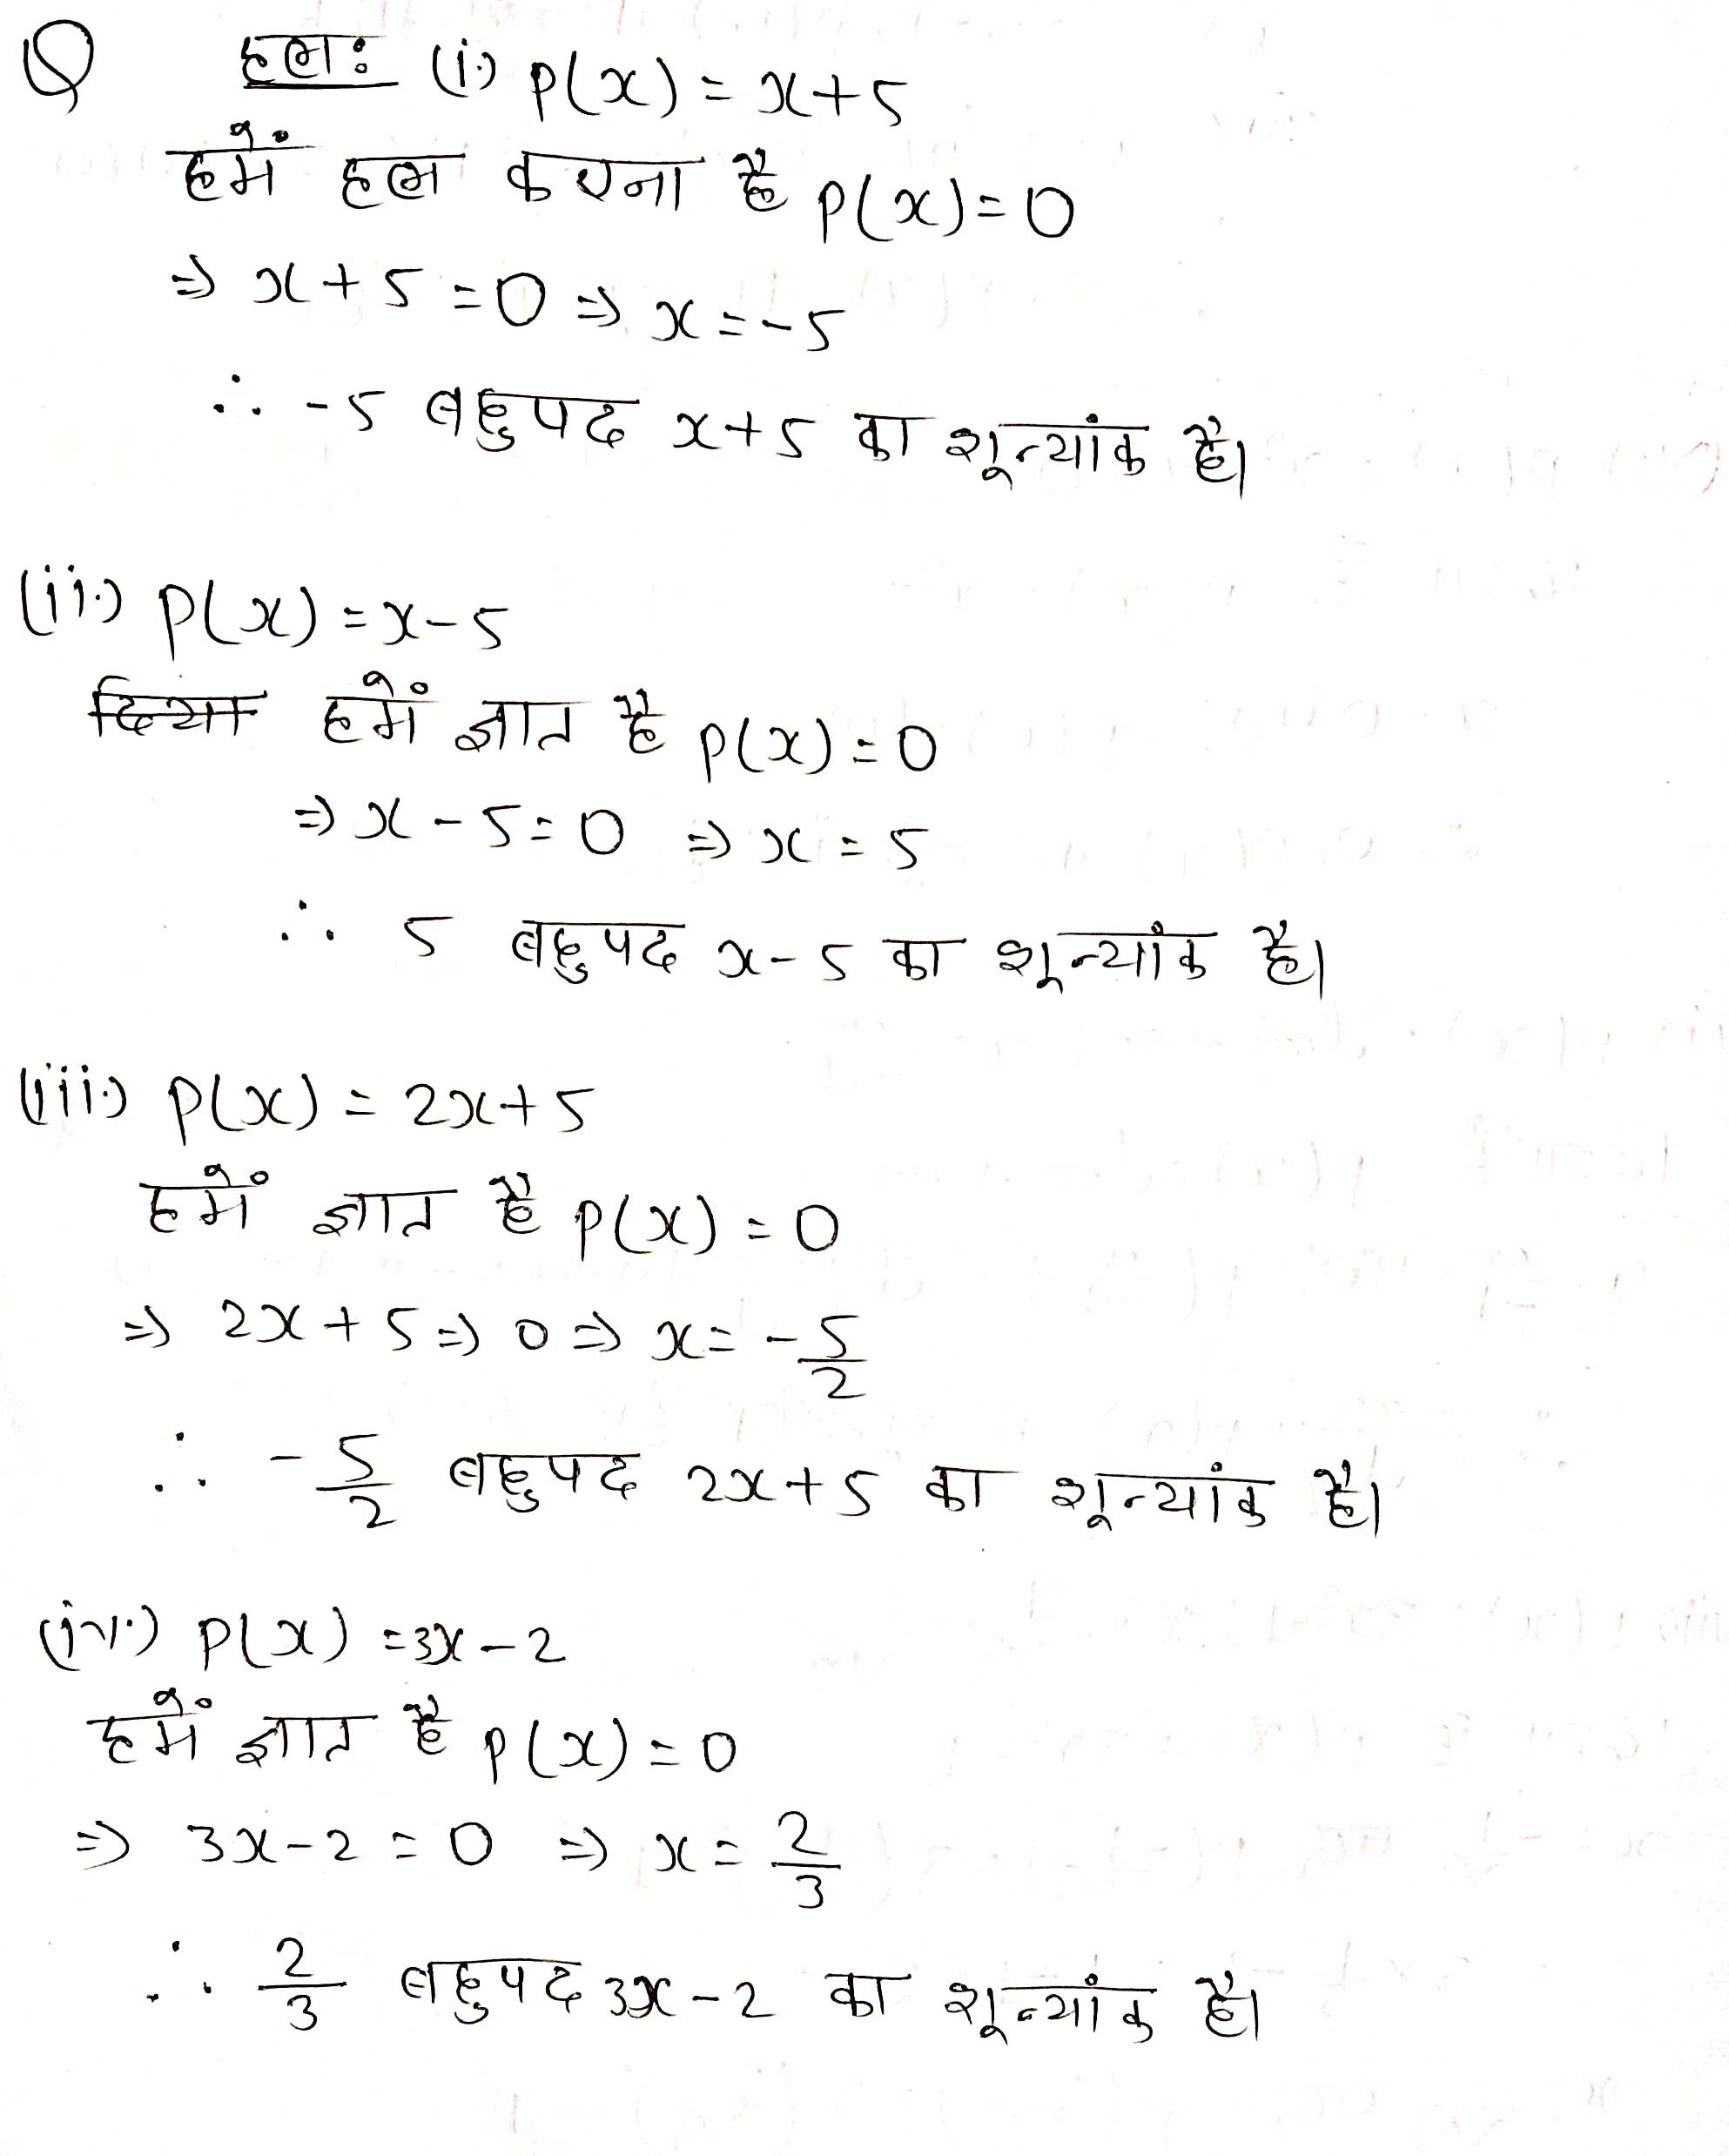 Q हल: (i.) p(x) = x+5
हमें हल करना है p(x)=0
⇒ x+5 =0 ⇒ x=-5
∴ -5 बहुपद x+5 का शून्यांक है।
(ii.) p(x) =x-5
दिया हमें ज्ञात है p(x)=0
⇒ x-5=0 ⇒ x=5
∴ 5 बहुपद x-5 का शून्यांक है।
(iii.) p(x) = 2x+5
हमें ज्ञात है p(x) =0
⇒ 2x+5 ⇒ 0 ⇒ x= -5/2
∴ -5/2 बहुपद 2x+5 का शून्यांक है।
(iv.) p(x) =3x-2
हमें ज्ञात है p(x)=0
⇒ 3x-2 =0 ⇒ x= 2/3
∴ 2/3 बहुपद 3x-2 का शून्यांक है।